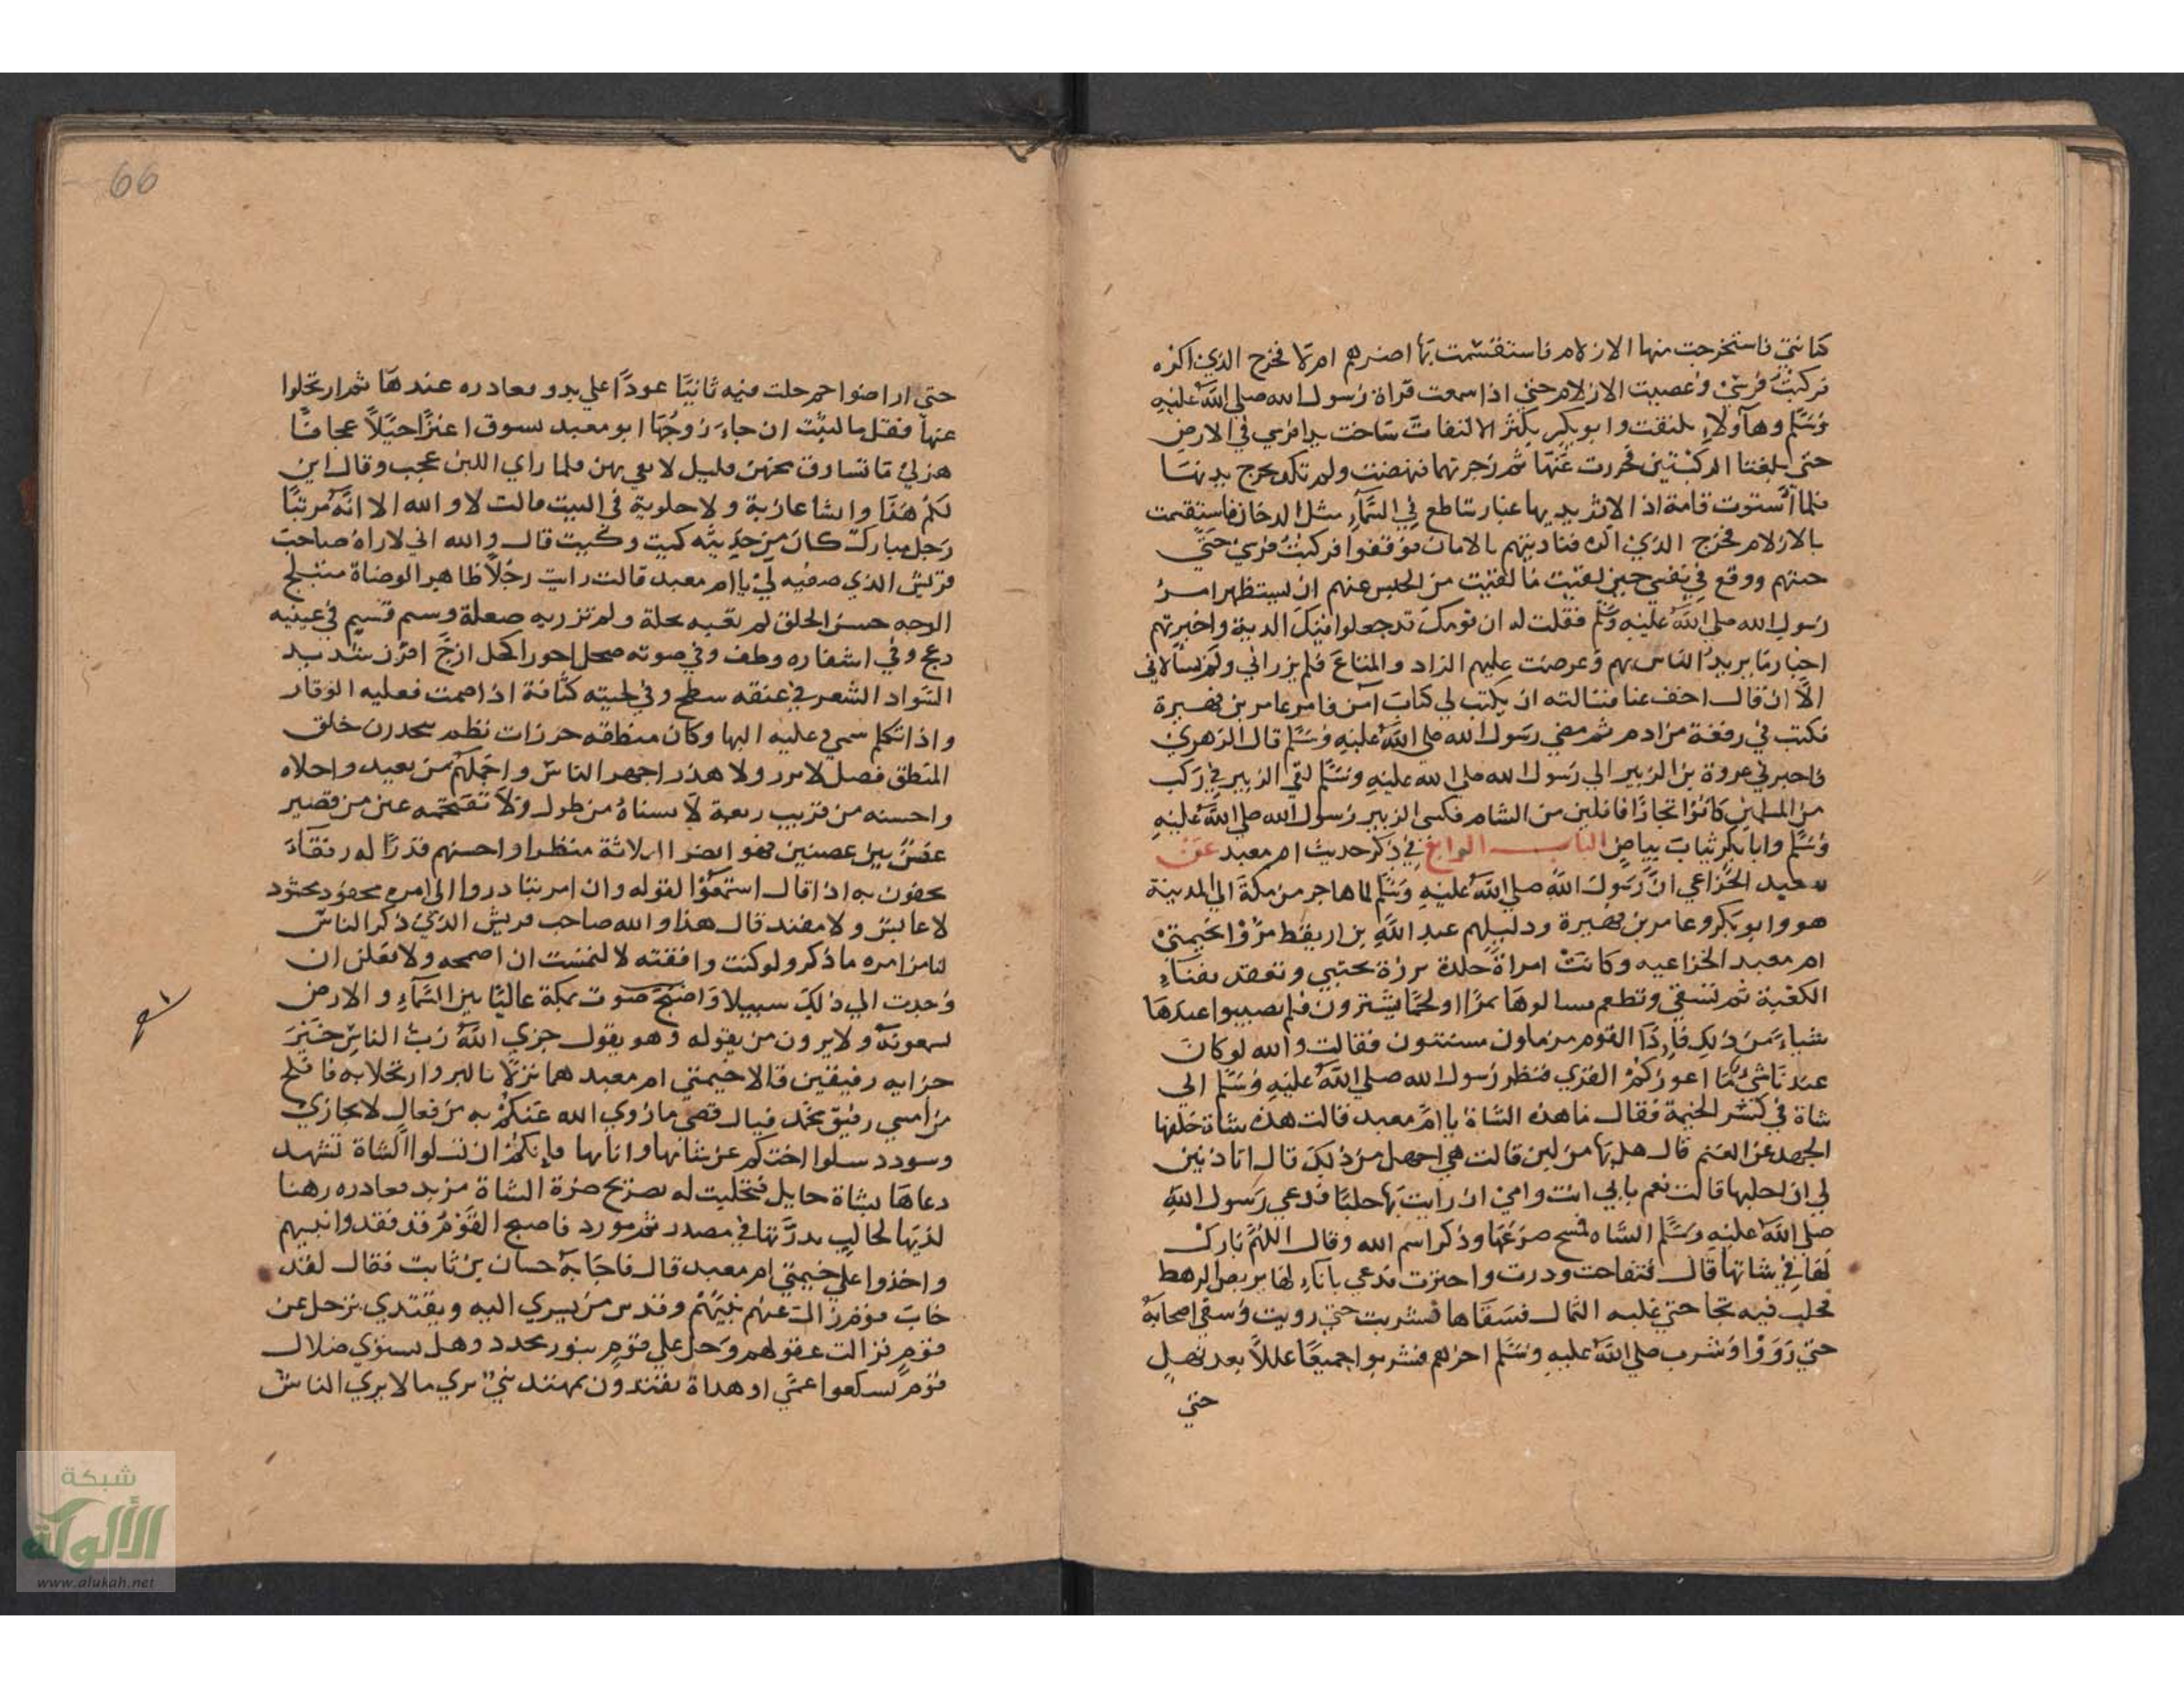 كنانتي فاستخرجت منها الازلام فاستقسمت بها اضرهم ام لا فخرج الذي اكره
فركبت فرسي وعصيت الازلام حتى اذا سمعت قراة رسول الله صلى الله عليه
وسلم وهو لا يلتفت وابو بكر يكثر الالتفات ساخت يدا فرسي في الارض
حتى بلغتا الركبتين فخررت عنها ثم زجرتها فنهضت ولم تكد تخرج يديها
فلما استوت قامة اذا لاثر يديها غبار ساطع في السماء مثل الدخان فاستقسمت
بالازلام فخرج الذي اكره فناديتهم بالامان فوقفوا فركبت فرسي حتى
جيتهم ووقع في نفسي حين لقيت ما لقيت من الحبس عنهم ان سيظهر امر
رسول الله صلى الله عليه وسلم فقلت له ان قومك قد جعلوا فيك الدية واخبرتهم
اخبار ما يريد الناس بهم وعرضت عليهم الزاد والمتاع فلم يزراني ولم يسالاني
الا ان قال اخف عنا فسالته ان يكتب لي كتاب امن فامر عامر بن فهيرة
فكتب في رقعة من ادم ثم مضي رسول الله صلى الله عليه وسلم قال الزهري
فاخبرني عروة بن الزبير ان رسول الله صلى الله عليه وسلم لقي الزبير في ركب
من المسلمين كانوا تجارا قافلين من الشام فكسى الزبير رسول الله صلى الله عليه
وسلم وابا بكر ثياب بياض الباب الرابع في ذكر حديث ام معبد عن
معبد الخزاعي ان رسول الله صلى الله عليه وسلم لما هاجر من مكة الي المدينة
هو وابو بكر وعامر بن فهيرة ودليلهم عبد الله بن اريقط مروا بخيمتي
ام معبد الخزاعيه وكانت امراة جلدة برزة تحتبي وتقعد بفناء
الكعبة ثم تسقي وتطعم فسالوها تمرا او لحما يشترون فلم يصيبوا عندها
شياء من ذلك فاذا القوم مرملون مسنتون فقالت والله لو كان
عندنا شئ ما اعوزكم القري فنظر رسول الله صلى الله عليه وسلم الي
شاة في كسر الخيمة فقال ما هذه الشاة يا ام معبد قالت هذه شاة خلفها
الجهد عن الغنم قال هل بها من لبن قالت هي اجهد من ذلك قال اتاذنين
لي ان احلبها قالت نعم بابي انت وامي ان رايت بها حلبا فدعي رسول الله
صلى الله عليه وسلم الشاه فمسح ضرعها وذكر اسم الله وقال اللهم بارك
لها في شاتها قال فتفاجت ودرت واجترت فدعي باناء لها يربض الرهط
فحلب فيه ثجا حتى غلبه الثمال فسقاها فشربت حتى رويت وسقي اصحابه
حتى رووا وشرب صلى الله عليه وسلم اخرهم فشربوا جميعا عللا بعد نهل
حتى
66
حتى اراضوا ثم حلب فيه ثانيا عودا على بدو فغادره عندها ثم ارتحلوا
عنها فقل ما لبثت ان جاء زوجها ابو معبد يسوق اعنزا حيلا عجافا
هزلى ما تساوق مخهن قليل لا نقي بهن فلما راي اللبن عجب وقال اين
لكم هذا والشا عازبة ولا حلوبة في البيت قالت لا والله الا انه مر بنا
رجل مبارك كان من حديثه كيت وكيت قال والله اني لاراه صاحب
قريش الذي صفيه لي يا ام معبد قالت رايت رجلا ظاهر الوضاة متبلج
الوجه حسن الخلق لم تعبه نحلة ولم تزر به صعلة وسيم قسيم في عينيه
دعج وفي اشفاره وطف وفي صوته صحل احور اكحل ازج اقرن شديد
السواد الشعر في عنقه سطح وفي لحيته كثافة اذا صمت فعليه الوقار
واذا تكلم سمي وعليه البها وكان منطقه خرزات نظم يتحدرن خلق
المنطق فصل لا نزر ولا هذر اجهر الناس واجملهم من بعيد واحلاه
واحسنه من قريب ربعة لا تشناه من طول ولا تقتحمه عين من قصير
غصن بين غصنين فهو انضر الثلاثة منظرا واحسنهم قدرا له رفقاء
يحفون به اذا قال استمعوا لقوله وان امر تبادروا الى امره محفود محشود
لا عابس ولا مفند قال هذا والله صاحب قريش الذي ذكر الناس
لنا من امره ما ذكر ولو كنت وافقته لالتمست ان اصحبه ولافعلن ان
وجدت الي ذلك سبيلا واصبح صوت بمكة عاليا بين السماء والارض
يسمعونه ولا يرون من يقوله وهو يقول جزي الله رب الناس خير
جزايه رفيقين قالا خيمتي ام معبد هما نزلا بالبر وارتحلا به فافلح
من امسي رفيق محمد فيال قصي ما زوي الله عنكم به من فعال لا يجازى
وسودد سلوا اختكم عن شاتها وانايها فانكم ان تسلوا الشاة تشهد
دعاها بشاة حايل فتحلبت له بصريح ضرة الشاة مزبد فغادره رهنا
لديها لحالب بدرتها في مصدر ثم مورد فاصبح القوم قد فقدوا نبيهم
واخذوا على خيمتي ام معبد قال فاجابه حسان بن ثابت فقال لقد
خاب قوم زال عنهم نبيهم وقدس من يسري اليه ويقتدي ترحل عن
قوم فزالت عقولهم وحل على قوم بنور مجدد وهل يستوي ضلال
قوم تسكعوا عمى او هداة يقتدون بمهتد نبي يري مالا يري الناس
شبكة
الألوكة
www.alukah.net